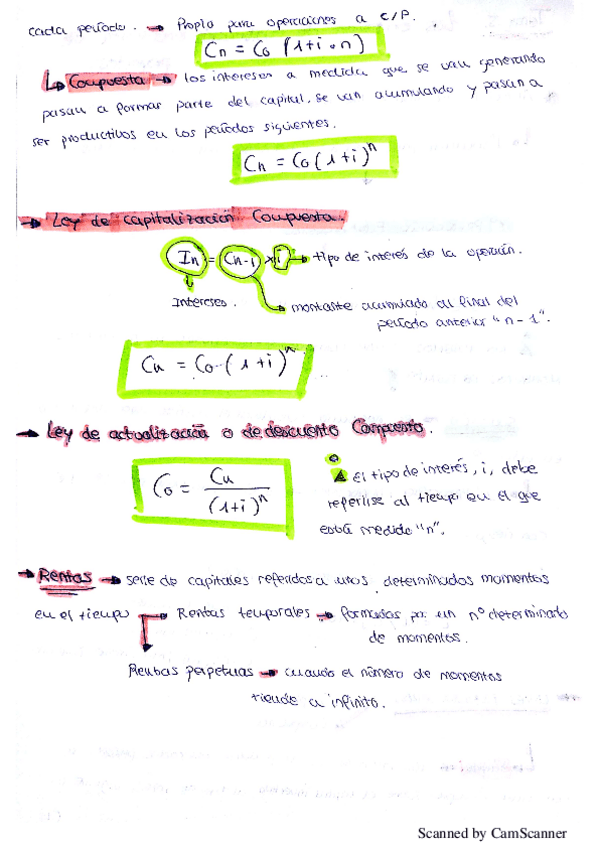 cada período. → Propio para operaciones a C/P.
Cn = C0 (1+i·n)
↳ Compuesta → los intereses a medida que se van generando
pasan a formar parte del capital, se van acumulando y pasan a
ser productivos en los períodos siguientes.
Cn = C0 (1+i)^n
→ Ley de capitalización Compuesta.
In = Cn-1 × i → tipo de interés de la operación.
Intereses. → montante acumulado al final del
período anterior "n-1".
Cn = C0·(1+i)^n
→ Ley de actualización o de descuento Compuesto.
C0 = Cn / (1+i)^n
El tipo de interés, i, debe
referirse al tiempo en el que
está medido "n".
→ Rentas → serie de capitales referidos a unos determinados momentos
en el tiempo → Rentas temporales → formadas por un nº determinado
de momentos.
Rentas perpetuas → cuando el número de momentos
tiende a infinito.
Scanned by CamScanner